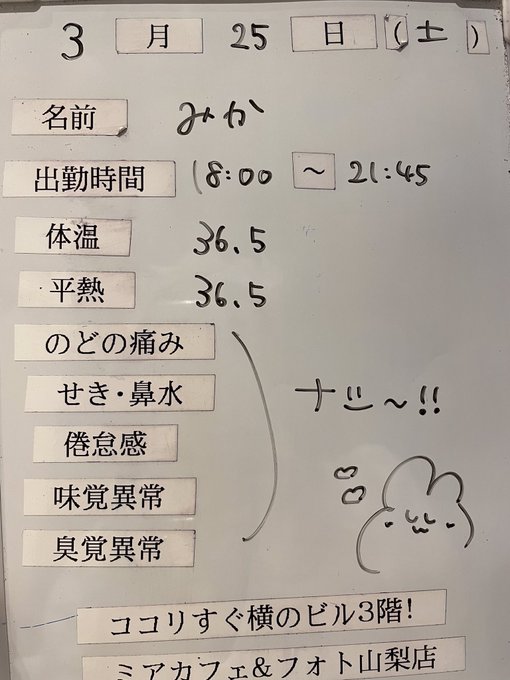 3 月 25 日 (土)
名前 みか
出勤時間 18:00 ~ 21:45
体温 36.5
平熱 36.5
のどの痛み
せき・鼻水
倦怠感
味覚異常
臭覚異常
ナシ~!!
ココリすぐ横のビル3階!
ミアカフェ&フォト山梨店